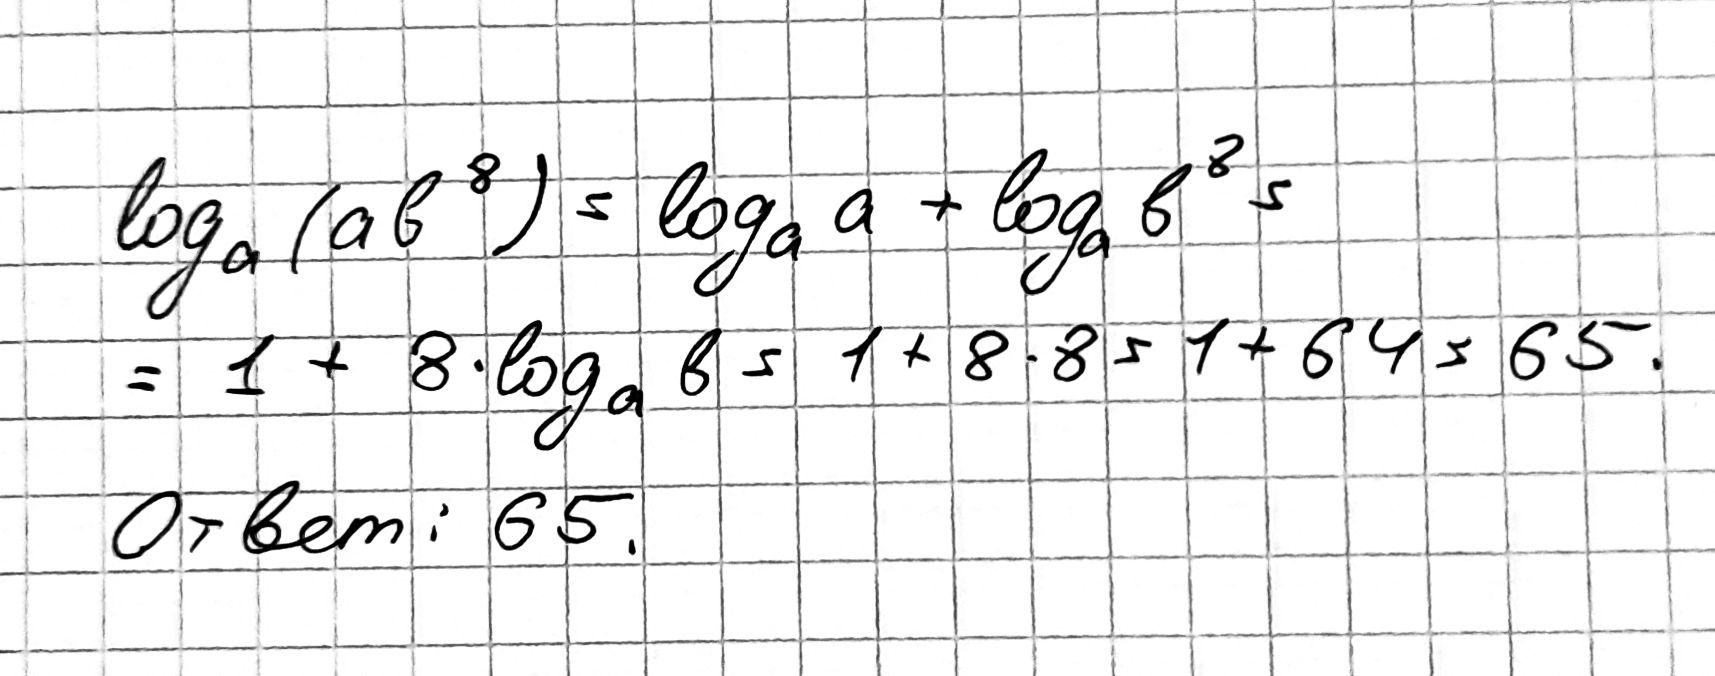 logₐ(ab⁸) = logₐ a + logₐ b⁸ =
= 1 + 8·logₐ b = 1 + 8·8 = 1 + 64 = 65.
Ответ: 65.